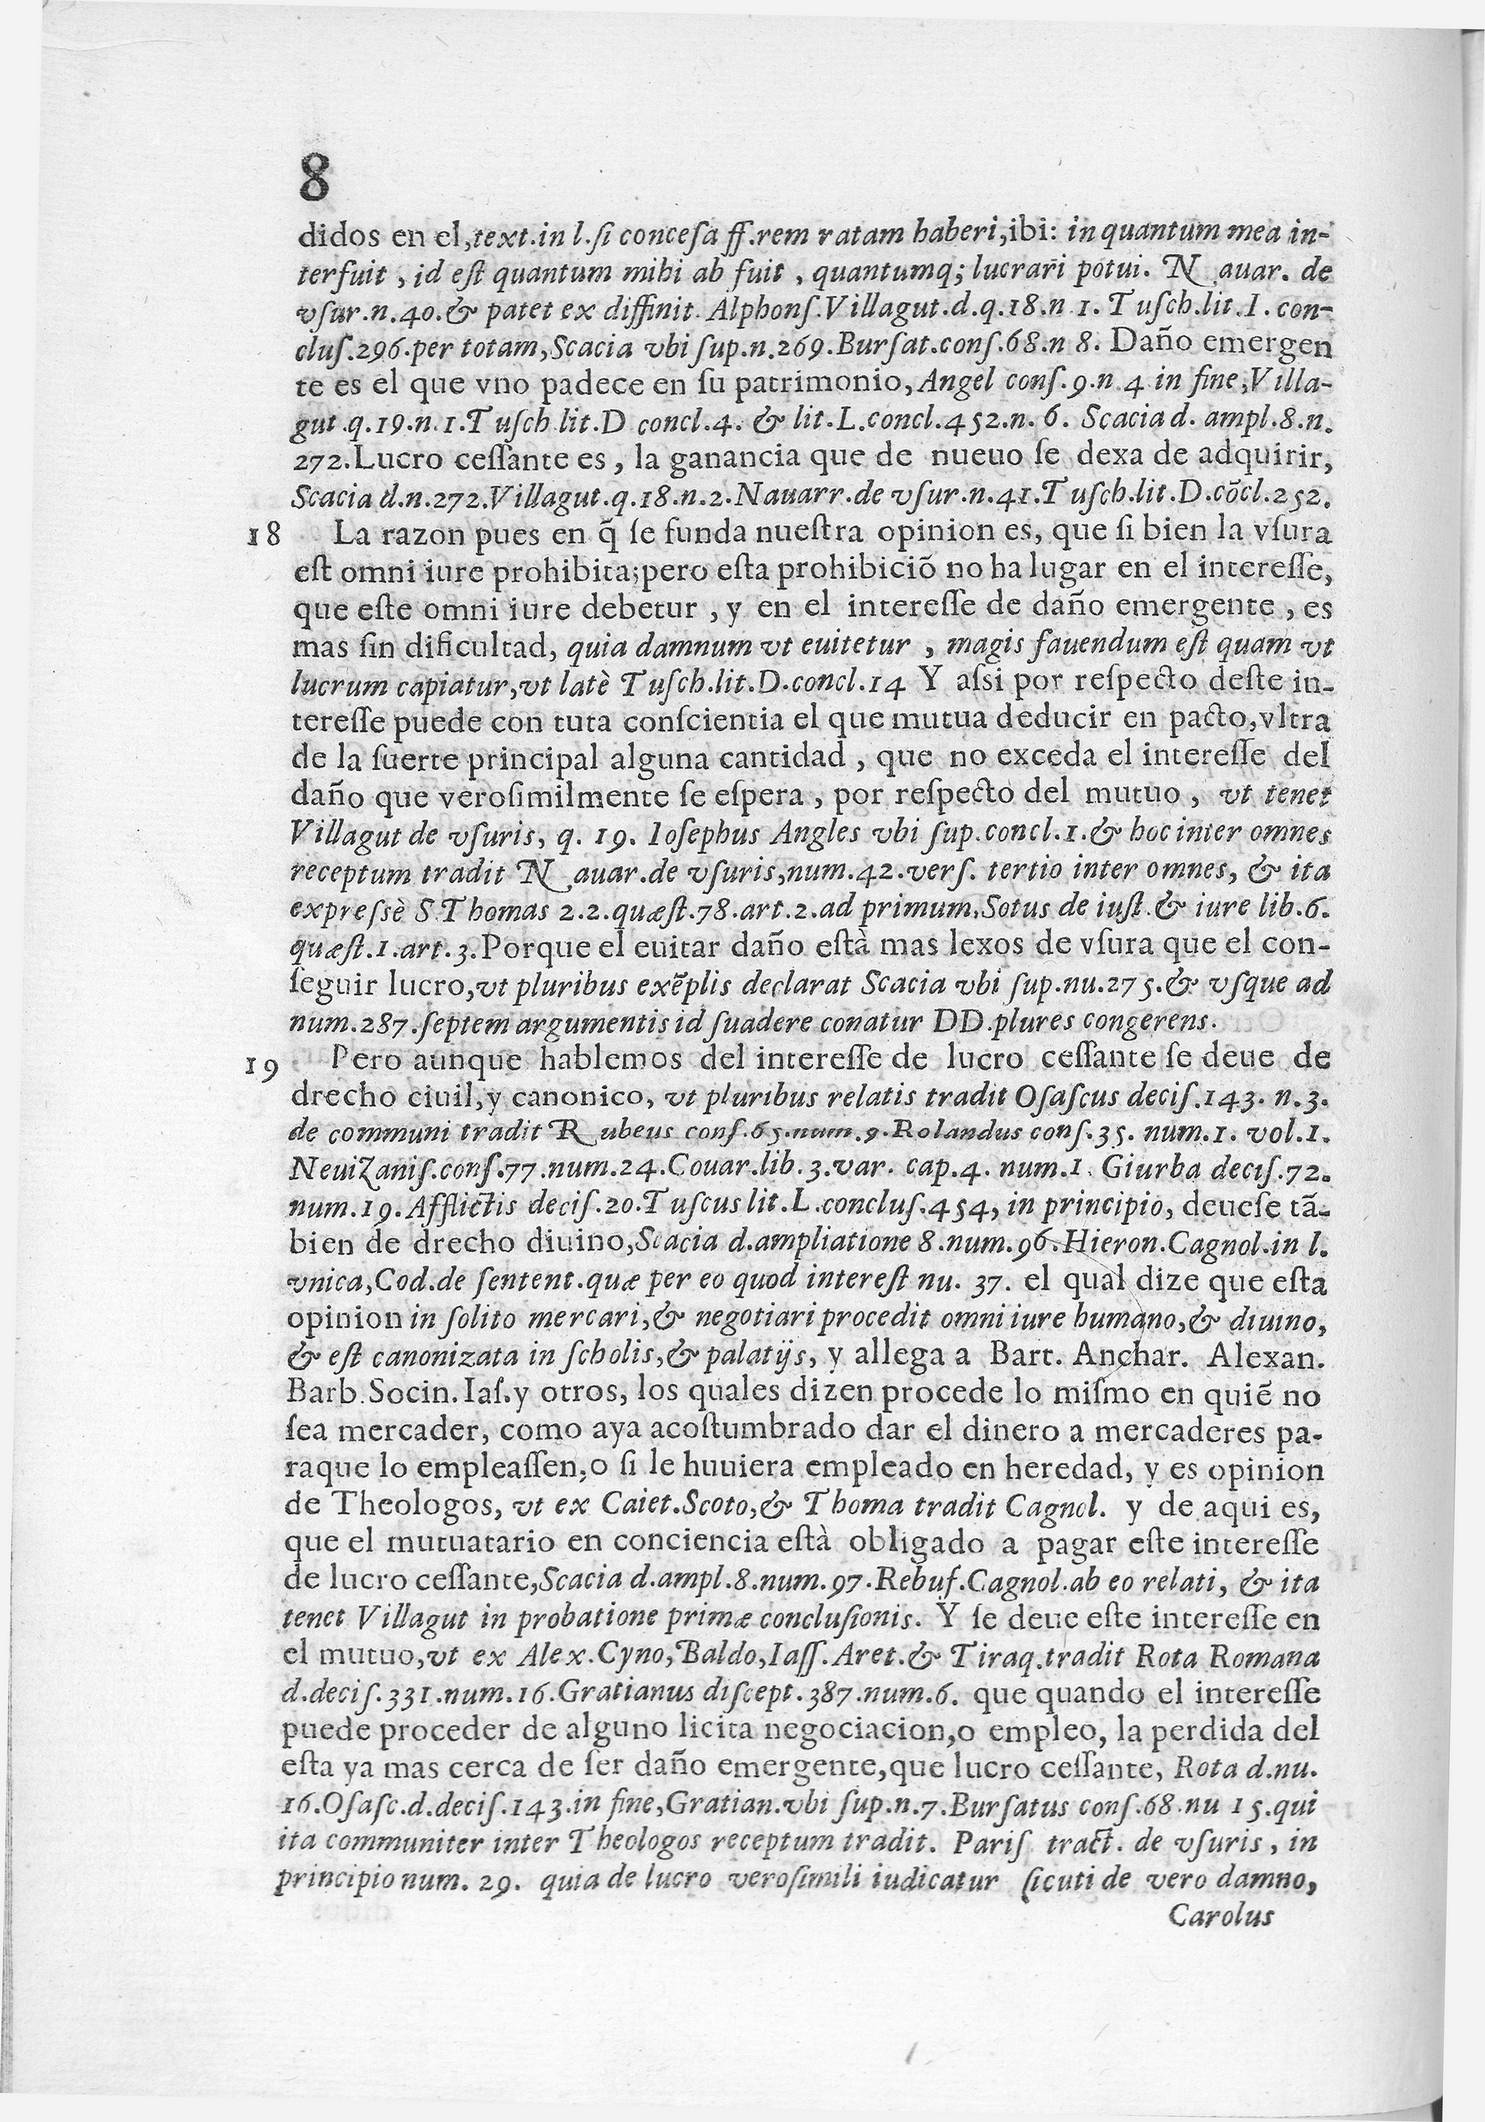 8
didos en el, text. in l. ſi conceſa ff. rem ratam haberi, ibi: in quantum mea in-
terfuit, id eſt quantum mihi ab fuit, quantumq; lucrari potui. Nauar. de
vſur. n. 40. & patet ex diffinit. Alphonſ. Villagut. d. q. 18. n 1. Tuſch. lit. I. con-
cluſ. 296. per totam, Scacia vbi ſup. n. 269. Burſat. conſ. 68. n 8. Daño emergen
te es el que vno padece en ſu patrimonio, Angel conſ. 9. n. 4 in fine, Villa-
gut. q. 19. n. 1. Tuſch lit. D concl. 4. & lit. L. concl. 452. n. 6. Scacia d. ampl. 8. n.
272. Lucro ceſſante es, la ganancia que de nueuo ſe dexa de adquirir,
Scacia d. n. 272. Villagut. q. 18. n. 2. Nauarr. de vſur. n. 41. Tuſch. lit. D. cõcl. 252.
18 La razon pues en q̃ ſe funda nueſtra opinion es, que ſi bien la vſura
eſt omni iure prohibita; pero eſta prohibiciõ no ha lugar en el intereſſe,
que eſte omni iure debetur, y en el intereſſe de daño emergente, es
mas ſin dificultad, quia damnum vt euitetur, magis fauendum eſt quam vt
lucrum capiatur, vt latè Tuſch. lit. D. concl. 14 Y aſsi por reſpecto deſte in-
tereſſe puede con tuta conſcientia el que mutua deducir en pacto, vltra
de la ſuerte principal alguna cantidad, que no exceda el intereſſe del
daño que veroſimilmente ſe eſpera, por reſpecto del mutuo, vt tenet
Villagut de vſuris, q. 19. Ioſephus Angles vbi ſup. concl. 1. & hoc inter omnes
receptum tradit Nauar. de vſuris, num. 42. verſ. tertio inter omnes, & ita
expreſsè S. Thomas 2. 2. quæſt. 78. art. 2. ad primum, Sotus de iuſt. & iure lib. 6.
quæſt. 1. art. 3. Porque el euitar daño eſtà mas lexos de vſura que el con-
ſeguir lucro, vt pluribus exẽplis declarat Scacia vbi ſup. nu. 275. & vſque ad
num. 287. ſeptem argumentis id ſuadere conatur DD. plures congerens.
19 Pero aunque hablemos del intereſſe de lucro ceſſante ſe deue de
drecho ciuil, y canonico, vt pluribus relatis tradit Oſaſcus deciſ. 143. n. 3.
de communi tradit Rubeus conſ. 65. num. 9. Rolandus conſ. 35. num. 1. vol. 1.
Neuizaniſ. conſ. 77. num. 24. Couar. lib. 3. var. cap. 4. num. 1. Giurba deciſ. 72.
num. 19. Afflictis deciſ. 20. Tuſcus lit. L. concluſ. 454, in principio, deueſe tã-
bien de drecho diuino, Scacia d. ampliatione 8. num. 96. Hieron. Cagnol. in l.
vnica, Cod. de ſentent. quæ per eo quod intereſt nu. 37. el qual dize que eſta
opinion in ſolito mercari, & negotiari procedit omni iure humano, & diuino,
& eſt canonizata in ſcholis, & palatijs, y allega a Bart. Anchar. Alexan.
Barb. Socin. Iaſ. y otros, los quales dizen procede lo miſmo en quiẽ no
ſea mercader, como aya acoſtumbrado dar el dinero a mercaderes pa-
raque lo empleaſſen, o ſi le huuiera empleado en heredad, y es opinion
de Theologos, vt ex Caiet. Scoto, & Thoma tradit Cagnol. y de aqui es,
que el mutuatario en conciencia eſtà obligado a pagar eſte intereſſe
de lucro ceſſante, Scacia d. ampl. 8. num. 97. Rebuf. Cagnol. ab eo relati, & ita
tenet Villagut in probatione primæ concluſionis. Y ſe deue eſte intereſſe en
el mutuo, vt ex Alex. Cyno, Baldo, Iaſſ. Aret. & Tiraq. tradit Rota Romana
d. deciſ. 331. num. 16. Gratianus diſcept. 387. num. 6. que quando el intereſſe
puede proceder de alguno licita negociacion, o empleo, la perdida del
eſta ya mas cerca de ſer daño emergente, que lucro ceſſante, Rota d. nu.
16. Oſaſc. d. deciſ. 143. in fine, Gratian. vbi ſup. n. 7. Burſatus conſ. 68. nu 15. qui
ita communiter inter Theologos receptum tradit. Pariſ tract. de vſuris, in
principio num. 29. quia de lucro veroſimili iudicatur ſicuti de vero damno,
Carolus